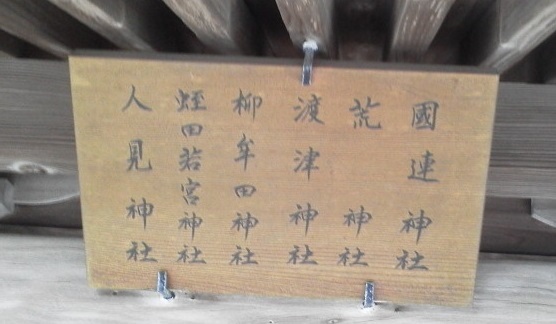 國連神社
荒神社
渡津神社
柳牟田神社
蛭田若宮神社
人見神社